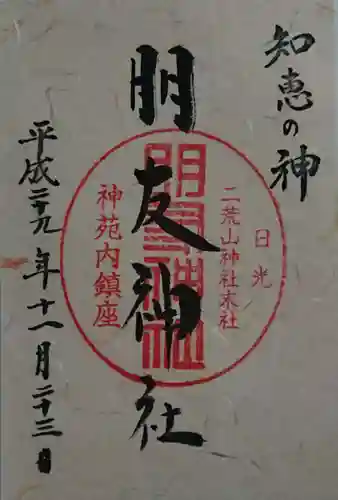 知恵の神
日光
二荒山神社末社
朋友神社
朋友神社
神苑内鎮座
平成二十九年十一月二十三日